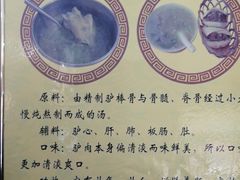 原料：由精制驴棒骨与骨髓，脊骨经过小
慢炖熬制而成的汤。
辅料：驴心、肝、肺、板肠、肚。
口味：驴肉本身偏清淡而味鲜美，所以口
更加清淡爽口。